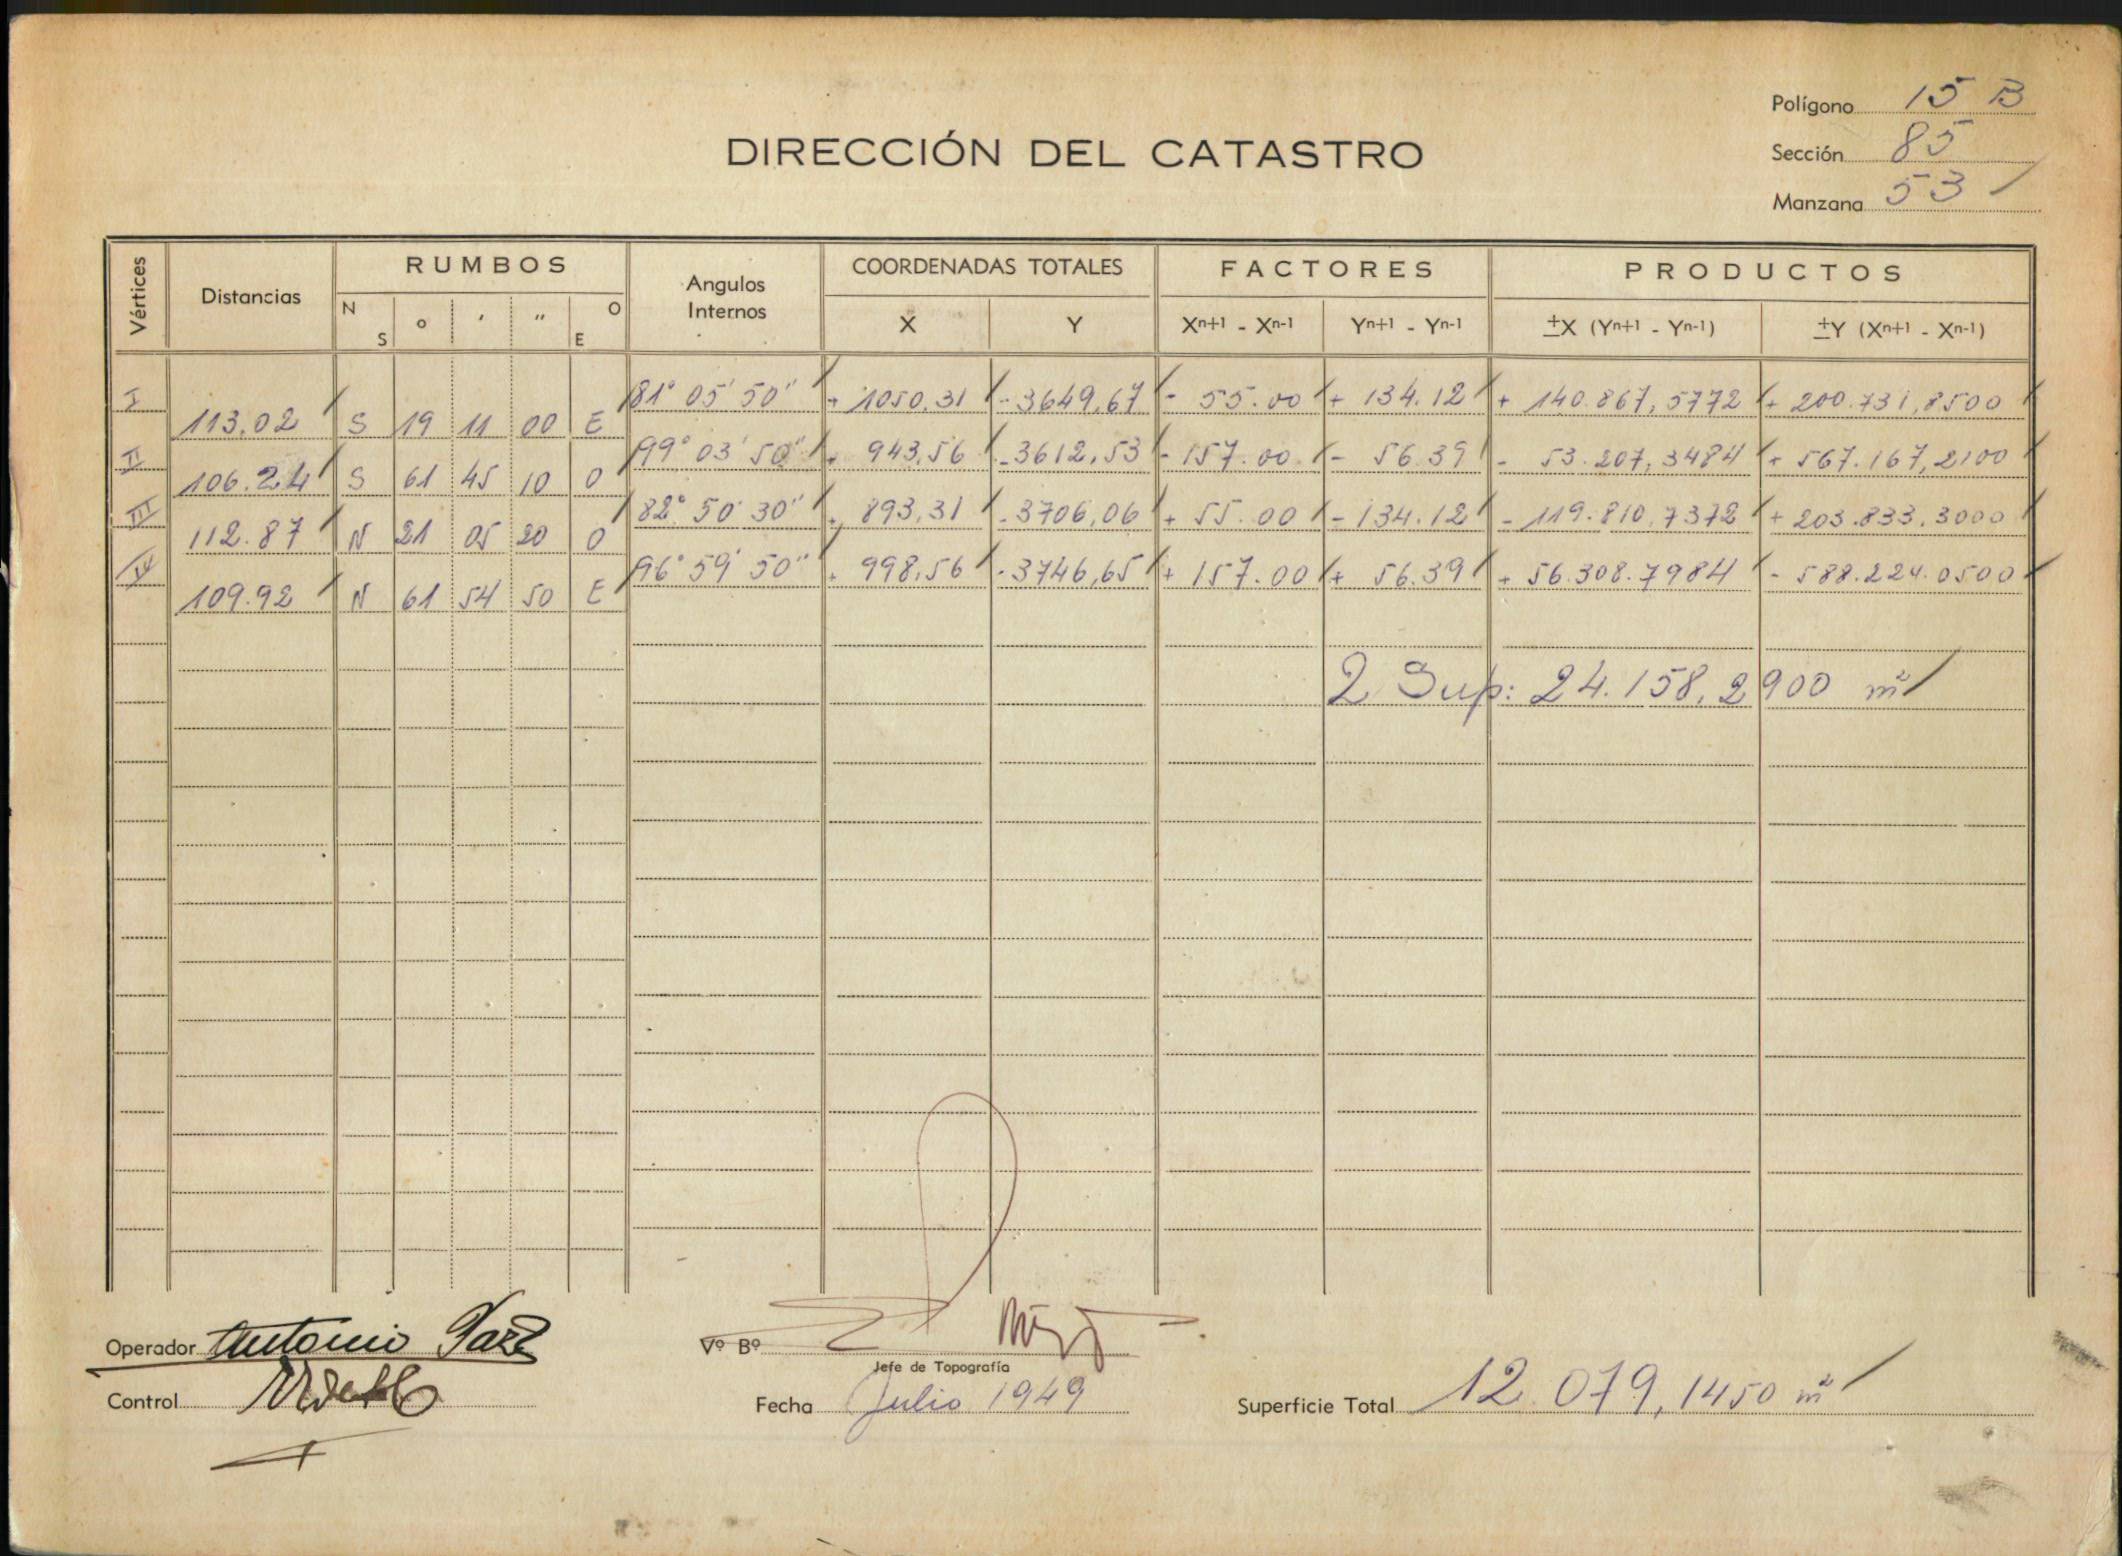 Polígono 15 B
DIRECCIÓN DEL CATASTRO
Sección 85
Manzana 53
Vértices Distancias RUMBOS Angulos Internos COORDENADAS TOTALES FACTORES PRODUCTOS
N S o ' " O E X Y Xⁿ⁺¹ - Xⁿ⁻¹ Yⁿ⁺¹ - Yⁿ⁻¹ ±X (Yⁿ⁺¹ - Yⁿ⁻¹) ±Y (Xⁿ⁺¹ - Xⁿ⁻¹)
I 81° 05' 50" + 1050,31 - 3649,67 - 55.00 + 134.12 + 140.867,5772 + 200.731,8500
113,02 S 19 11 00 E
II 99° 03' 50" + 943,56 - 3612,53 - 157.00 - 56.39 - 53.207,3484 + 567.167,2100
106.24 S 61 45 10 O
III 82° 50' 30" + 893,31 - 3706,06 + 55.00 - 134.12 - 119.810,7372 + 203.833,3000
112.87 N 21 05 20 O
IV 96° 59' 50" + 998,56 - 3746,65 + 157.00 + 56.39 + 56.308.7984 - 588.224.0500
109.92 N 61 54 50 E
2 Sup: 24.158,2900 m²
Operador Antonio
Vº Bº
Jefe de Topografía
Control
Fecha Julio 1949
Superficie Total 12.079,1450 m²